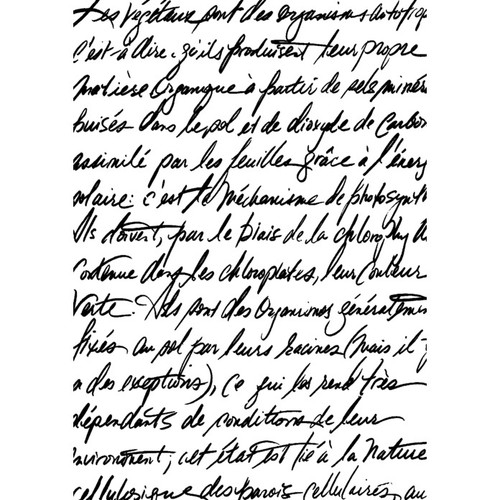 Les végétaux sont des organismes autotrop
c'est-à-dire qu'ils produisent leur propre
matière organique à partir de sels minér
puisés dans le sol et de dioxyde de carbon
assimilé par les feuilles grâce à l'énerg
solaire: c'est le méchanisme de photosynth
Ils doivent, par le biais de la chlorophy
contenue dans les chloroplastes, leur couleur
verte. Ils sont des organismes généralemen
fixés au sol par leurs racines (mais il y
a des exceptions), ce qui les rend très
dépendants de conditions de leur
environnement; cet état est lié à la nature
cellulosique des parois cellulaires, au